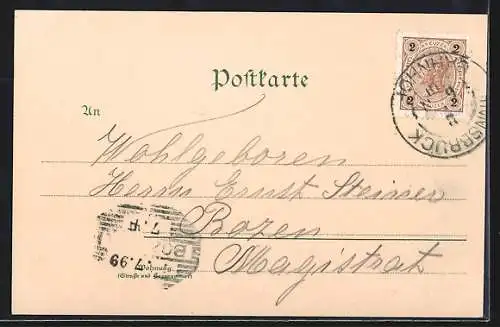 Postkarte
2 2
2 2
INNSBRUCK
An
Wohlgeboren
Herrn Ernst Steiner
Bozen
Magistrat
7. F
BOZ
7.99
Wohnung
(Straße und Hausnummer)